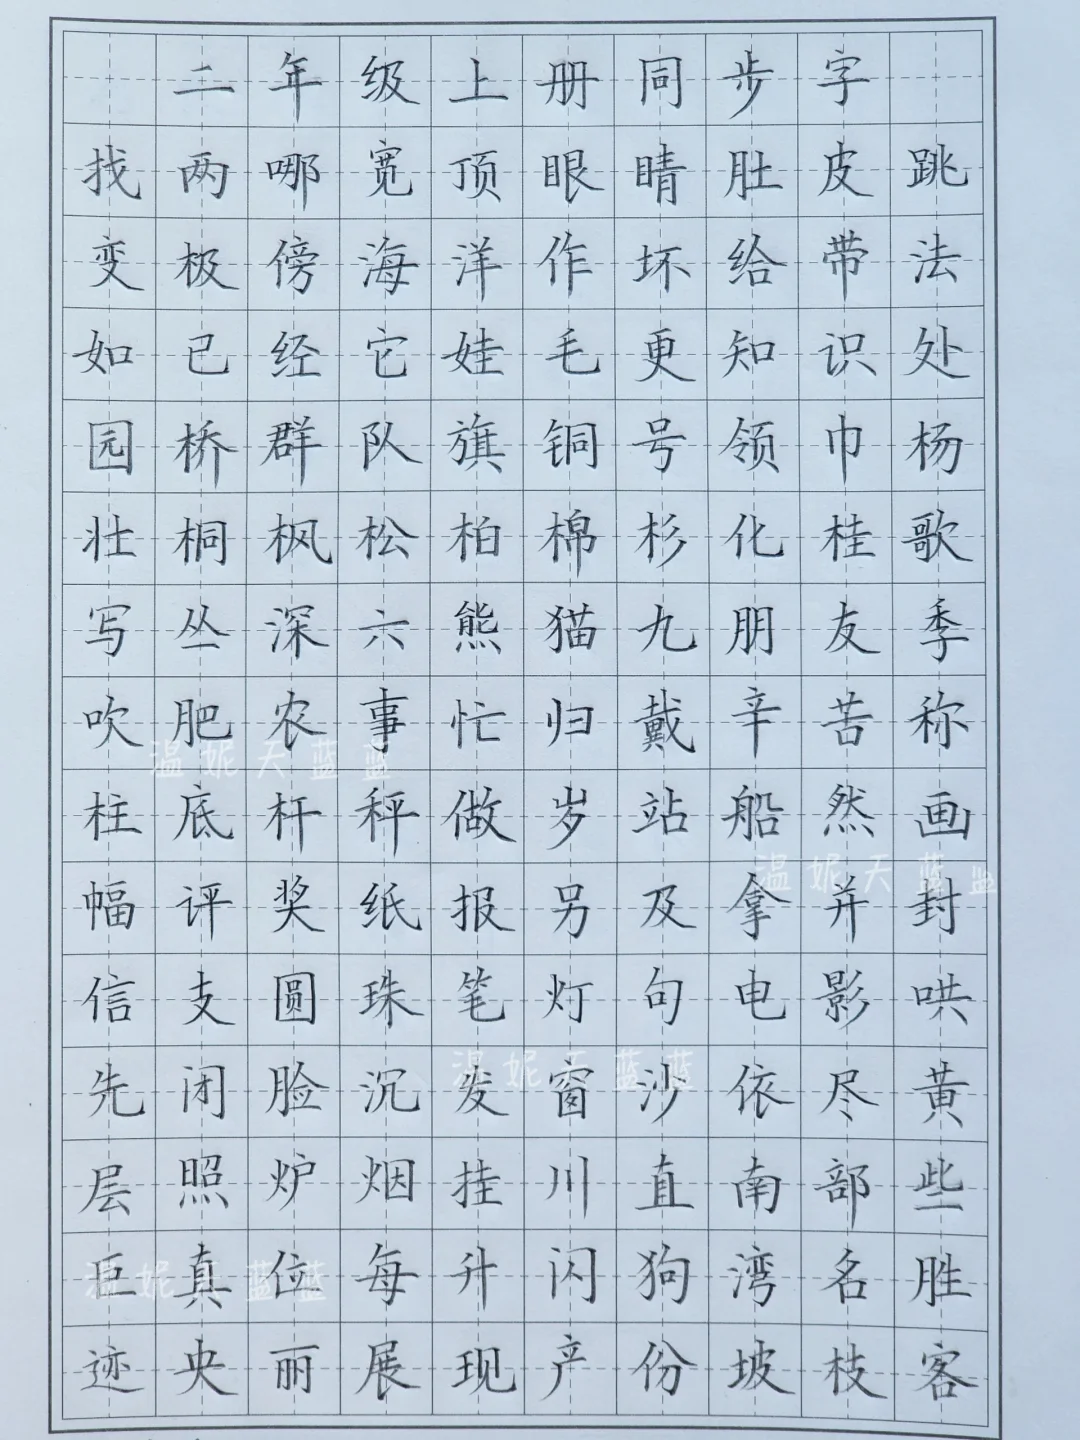 二年级上册同步字
找两哪宽顶眼睛肚皮跳
变极傍海洋作坏给带法
如已经它娃毛更知识处
园桥群队旗铜号领巾杨
壮桐枫松柏棉杉化桂歌
写丛深六熊猫九朋友季
吹肥农事忙归戴辛苦称
柱底杆秤做岁站船然画
幅评奖纸报另及拿并封
信支圆珠笔灯句电影哄
先闭脸沉发窗沙依尽黄
层照炉烟挂川直南部些
巨真位每升闪狗湾名胜
迹央丽展现产份坡枝客
温妮天蓝蓝
温妮天蓝蓝
温妮天蓝蓝
温妮天蓝蓝